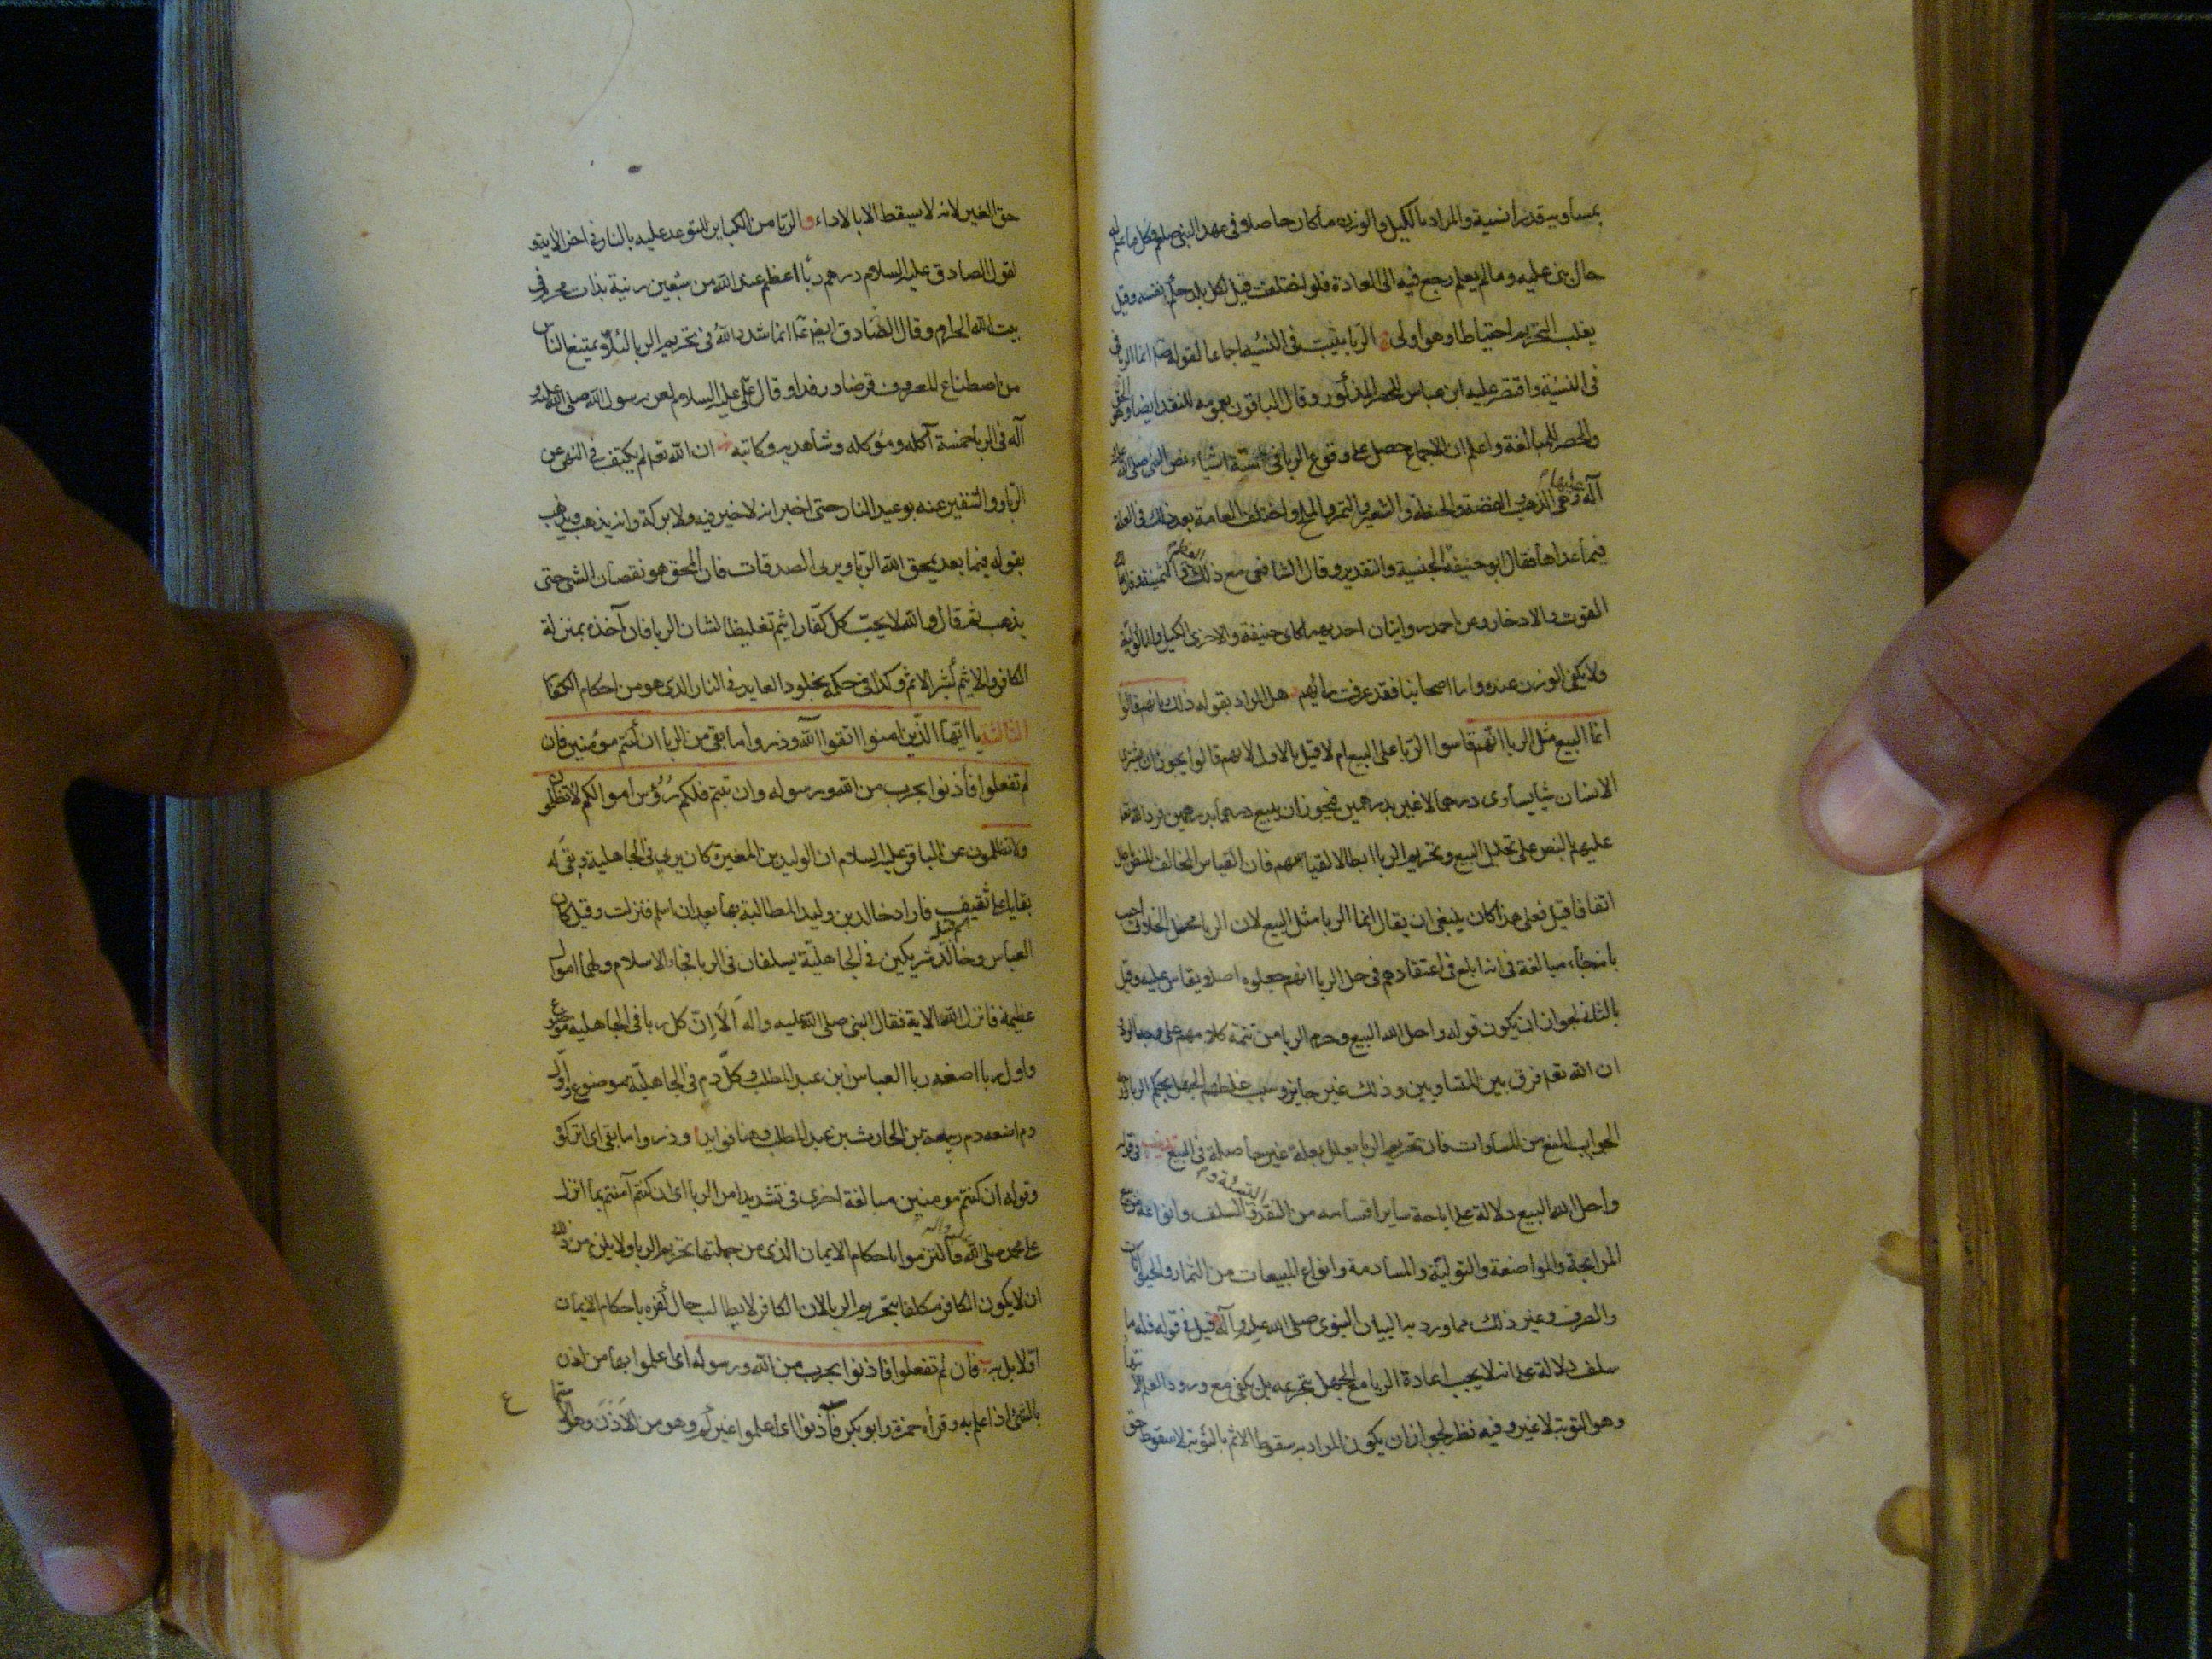 بمساويه قدرا نسية والمراد بالكيل والوزن ما كان حاصلا في عهد النبي صلعم وكل ما علم له
حال بنى عليه وما لم يعلم رجع فيه الى العادة فلو اختلفت قيل لكل بلد حكم نفسه وقيل
يغلب التحريم احتياطا وهو اولى الربا يثبت في النسية اجماعا لقوله انما الربا في
في النسية واقتصر عليه ابن عباس للحصر المذكور وقال الباقون بعمومه للنقد ايضا وهو الحق
والحصر للمبالغة واعلم ان الاجماع حصل على وقوع الربا في ستة اشياء نص النبي صلى الله عليه
آله عليها وهى الذهب والفضة والحنطة والشعير والتمر والملح واختلف العامة بعد ذلك في العلة
فيما عداها فقال ابو حنيفة الجنسية والتقدير وقال الشافعى مع ذلك الطعم والثمينة وقال مالك
القوت والادخار وعن احمد روايتان احديهما كابى حنيفة والاخرى الكيل والماكولية
ولا يكفى الوزن عنده واما اصحابنا فقد عرفت رأيهم هل المراد بقوله ذلك بانهم قالوا
انما البيع مثل الربا انهم قاسوا الربا على البيع ام لا قيل بالاول لانهم قالوا يجوز ان يشترى
الانسان شيا يساوى درهما لا غير بدرهمين فيجوز ان يبيع درهما بدرهمين فرد الله تعا
عليهم بالنص على تحليل البيع وتحريم الربا ابطالا لقياسهم فان القياس المخالف للنص باطل
اتفاقا قيل فعلى هذا كان ينبغى ان يقال انما الربا مثل البيع لان الربا محل الخلاف اجيب
بانه جاء مبالغة في انه ابلغ في اعتقادهم في حل الربا انهم جعلوه اصلا يقاس عليه وقيل
بالثانى لجواز ان يكون قوله واحل الله البيع وحرم الربا من تتمة كلامهم على وجه الرد
ان الله تعا فرق بين المتساويين وذلك غير جايز وسبب غلطهم الجهل بحكم الربا
الجواب المنع من المساوات فان تحريم الربا معلل بعلة غير حاصلة في البيع في قوله
واحل الله البيع دلالة على اباحة ساير اقسامه من النقد والنسئة والسلف وانواعه من بيع
المرابحة والمواضعة والتولية والمساومة وانواع المبيعات من الثمار والحيوانات
والصرف وغير ذلك مما ورد به البيان النبوى صلى الله عليه وآله قيل في قوله فله ما
سلف دلالة على انه لا يجب اعادة الربا مع الجهل بتحريمه بل يكفى مع ورود العلم الانتهاء
وهو التوبة لا غير وفيه نظر لجواز ان يكون المراد به سقوط الاثم بالتوبة لا سقوط حق
حق الغير لانه لا يسقط الا بالاداء و الربا من الكباير المتوعد عليه بالنار في اخر الاية و
لقول الصادق عليه السلام درهم ربا اعظم عند الله من سبعين زنية بذات محرم في
بيت الله الحرام وقال الصادق ايضا انما شدد الله في تحريم الربا لئلا يمتنع الناس
من اصطناع المعروف قرضا ورفدا وقال على عليه السلام لعن رسول الله صلى الله عليه و
آله في الربا خمسة آكله ومؤكله وشاهديه وكاتبه ان الله تعا لم يكتف في النهى عن
الربا والتنفير عنه بوعيد النار حتى اخبر انه لا خير فيه ولا بركة وانه يذهب ويذهب
بقوله فيما بعد يمحق الله الربا ويربى الصدقات فان المحق هو نقصان الشئ حتى
يذهب ثم قال والله لا يحب كل كفار اثيم تغليظا لشان الربا فان آخذه بمنزلة
الكافر والاثيم كثير الاثم وكذا في حكمه بخلود العايد في النار الذى هو من احكام الكفار
الثالثة يا ايها الذين امنوا اتقوا الله وذروا ما بقى من الربا ان كنتم مؤمنين فان
لم تفعلوا فأذنوا بحرب من الله ورسوله وان تبتم فلكم رؤس اموالكم لا تظلمون
ولا تظلمون عن الباقر عليه السلام ان الوليد بن المغيرة كان يربى في الجاهلية وبقى له
بقايا على ثقيف فاراد خالد بن وليد المطالبة بها بعد ان اسلم فنزلت وقيل كان
العباس وخالد شريكين في الجاهلية يسلفان في الربا فجاء الاسلام ولهما اموال
عظيمة فانزل الله الاية فقال النبي صلى الله عليه واله الا ان كل ربا في الجاهلية موضوع
واول ربا اضعه ربا العباس ابن عبد المطلب وكل دم في الجاهلية موضوع واول
دم اضعه دم ربيعة بن الحارث بن عبد المطلب وهنا فوايد وذروا ما بقى اى اتركوه
وقوله ان كنتم مومنين مبالغة اخرى في تشديد امر الربا اى ان كنتم آمنتم بما انزل
على محمد صلى الله عليه واله فالتزموا باحكام الايمان الذى من جملتها تحريم الربا ولا يلزم من ذلك
ان لا يكون الكافر مكلفا بتحريم الربا لان الكافر لا يطالب حال كفره باحكام الايمان
فان لم تفعلوا فاذنوا بحرب من الله ورسوله اى اعلموا بها من اذن
بالشئ اذا علم به وقرأه حمزة وابو بكر فآذنوا اى اعلموا غيركم وهو من الاذن وهو
ع